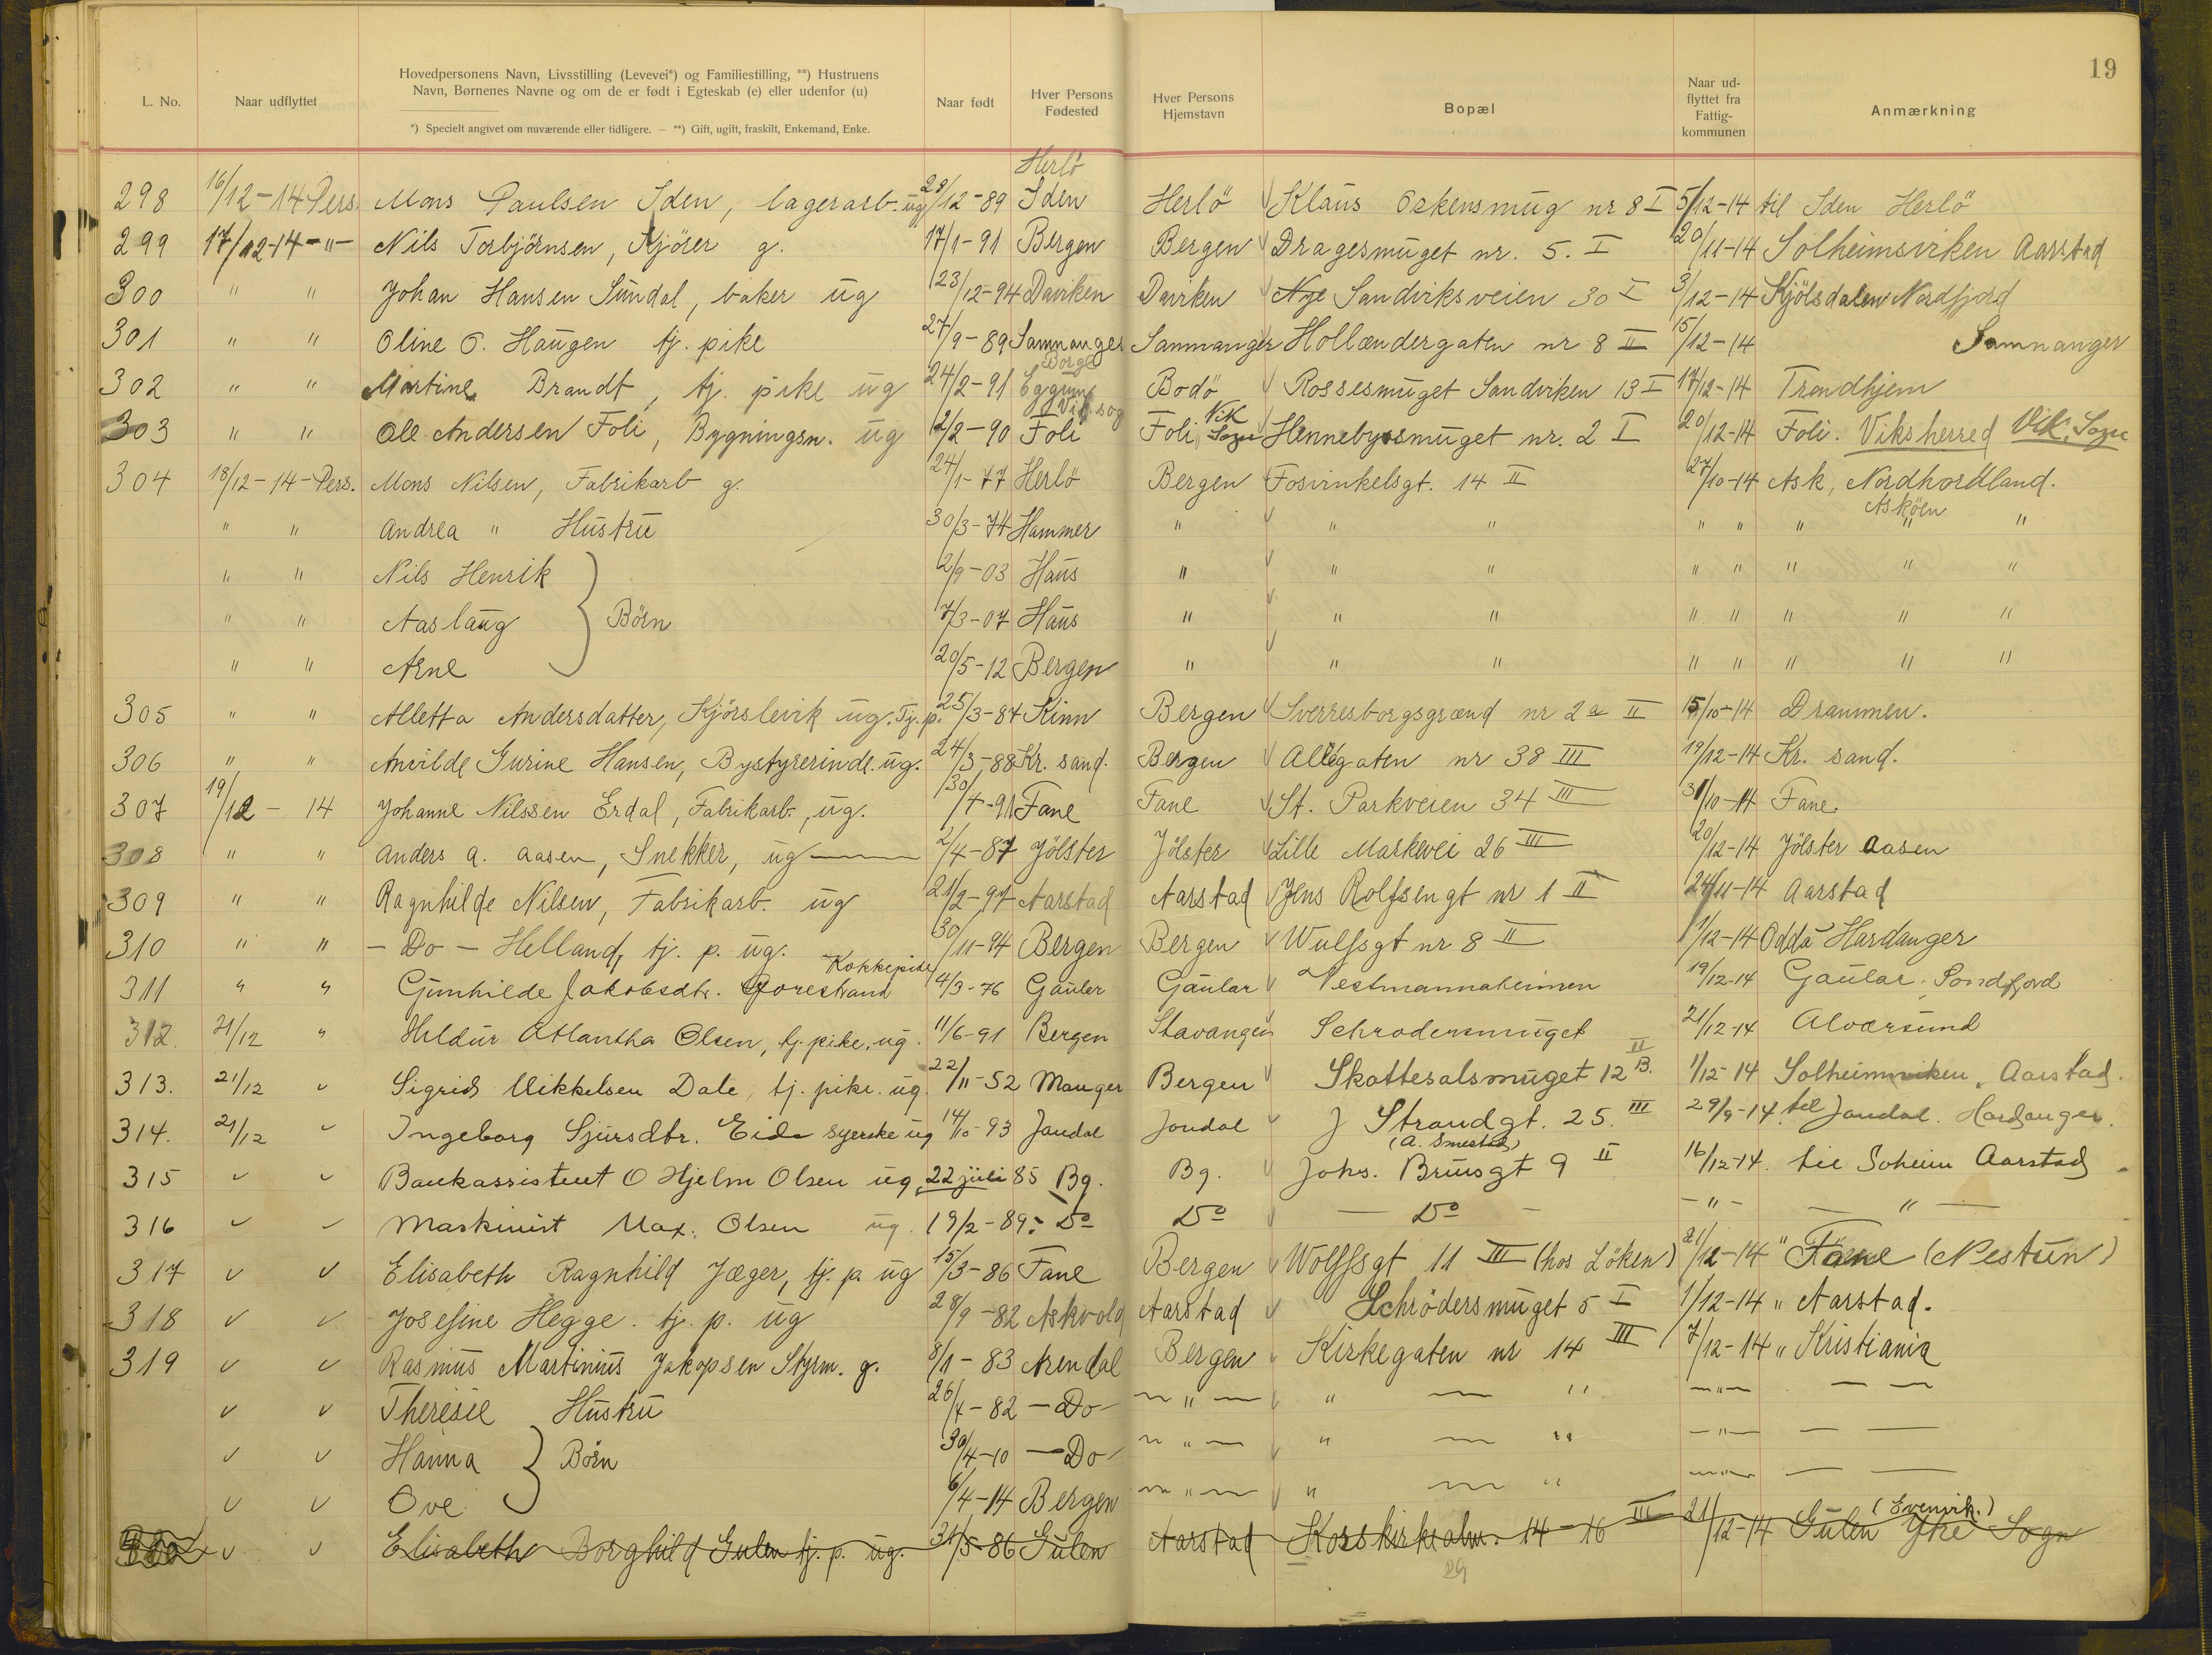 19
L. No.
Naar udflyttet
Hovedpersonens Navn, Livsstilling (Levevei*) og Familiestilling, **) Hustruens
Navn, Børnenes Navne og om de er født i Egteskab (e) eller udenfor (u)
*) Specielt angivet om nuværende eller tidligere. — **) Gift, ugift, fraskilt, Enkemand, Enke.
Naar født
Hver Persons
Fødested
Hver Persons
Hjemstavn
Bopæl
Naar ud-
flyttet fra
Fattig-
kommunen
Anmærkning
Herlö
298 16/12-14 Pers. Mons Paulsen Iden, lagerarb. ug 28/12-89 Iden Herlö Klaus Ockensmug nr 8 I 5/12-14 til Iden Herlö
299 17/12-14 -"- Nils Torbjörnsen, Kjörer g. 17/1-91 Bergen Bergen Dragesmuget nr. 5. I 20/11-14 Solheimsviken Aarstad
300 " " Johan Hansen Sundal, baker ug 23/12-94 Daviken Daviken Nye Sandviksveien 30 I 3/12-14 Kjölsdalen Nordfjord
301 " " Oline O. Haugen tj. pike 27/9-89 Samnanger Samnanger Hollændergaten nr 8 II 15/12-14 Samnanger
Borge
302 " " Martine Brandt, tj. pike ug 24/2-91 Eggum Bodö Rossesmuget Sandviken 13 I 17/12-14 Trondhjem
Vik sog
303 " " Ole Andersen Foli, Bygningsn. ug 12/2-90 Foli Foli, Vik Sogn Hennebysmuget nr. 2 I 20/12-14 Foli. Viksherred Vik, Sogn
304 18/12-14-Pers. Mons Nilsen, Fabrikarb g. 24/1-77 Herlö Bergen Fosvinkelsgt. 14 II 27/10-14 Ask, Nordhordland.
Asköen
" " Andrea " Hustru 30/3-74 Hammer " " " " " " " "
" " Nils Henrik 2/9-03 Haus " " " " " " " "
" " Aaslaug } Börn 7/3-07 Haus " " " " " " " "
" " Arne 20/5-12 Bergen " " " " " " " "
305 " " Alletta Andersdatter, Kjörslevik ug. Tj. p. 25/3-84 Kinn Bergen Sverresborgsgrænd nr 2a II 15/10-14 Drammen.
306 " " Anvilde Gurine Hansen, Bystyrerinde. ug. 24/3-88 Kr. sand. Bergen Allégaten nr 38 III 19/12-14 Kr. sand.
307 19/12-14 Johanne Nilssen Erdal, Fabrikarb., ug. 30/4-91 Fane Fane St. Parkveien 34 III 31/10-14 Fane.
308 " " Anders A. Aasen, Snekker, ug — 2/4-87 Jölster Jölster Lille Markevei 26 III 20/12-14 Jölster Aasen
309 " " Ragnhilde Nilsen, Fabrikarb. ug 21/2-97 Aarstad Aarstad Jens Rolfsengt nr 1 II 24/11-14 Aarstad
310 " " - Do - Helland, tj. p. ug. 30/11-94 Bergen Bergen Wulfsgt nr 8 II 1/12-14 Odda Hardanger
Kokkepike
311 " " Gunhilde Jakobsdtr. 4/3-76 Gauler Gaular Vestmannaheimen 19/12-14 Gaular, Söndfjord
312. 21/12 " Hildur Atlantha Olsen, tj. pike. ug. 11/6-91 Bergen Stavanger Schrodersmuget 21/12-14 Alversund
313. 21/12 " Sigrid Mikkelsen Dale, tj. pike. ug. 22/11-52 Manger Bergen Skottesalsmuget 12 B. II 1/12-14 Solheimsviken, Aarstad.
314. 21/12 " Ingeborg Sjursdtr. Eide syerske ug 14/10-93 Jondal Jondal J Strandgt. 25. III 29/9-14. til Jondal. Hardanger.
(A. Smestad)
315 " " Bankassistent O Hjelm Olsen ug. 22 juli 85 Bg. Bg. Johs. Brunsgt 9 II 16/12-14. til Soheim Aarstad.
316 " " Maskinist Max. Olsen ug. 19/2-89. Do Do — Do — -"- — " —
317 " " Elisabeth Ragnhild Jæger, tj. p. ug 15/3-86 Fane Bergen Wolffsgt 11 III (hos Löken) 21/12-14 " Fane (Nestun)
318 " " Josefine Hegge. tj. p. ug 28/9-82 Askvold Aarstad Schrödersmuget 5 I 1/12-14 " Aarstad.
319 " " Rasmus Martinius Jakopsen Styrm. g. 8/1-83 Arendal Bergen Kirkegaten nr 14 III 7/12-14 " Kristiania
" " Theresie Hustru 26/4-82 — Do — — " — " — " — " — — —
" " Hanna } Börn 30/4-10 — Do — — " — " — " — " — — —
" " Ove 6/4-14 Bergen — " — " — " — " — — —
(Evenvik.)
320 " " Elisabeth Borghild Gulen tj. p. ug. 31/5-86 Gulen Aarstad Korskirkealm. 14-16 III 21/12-14 Gulen Ytre Sogn
29